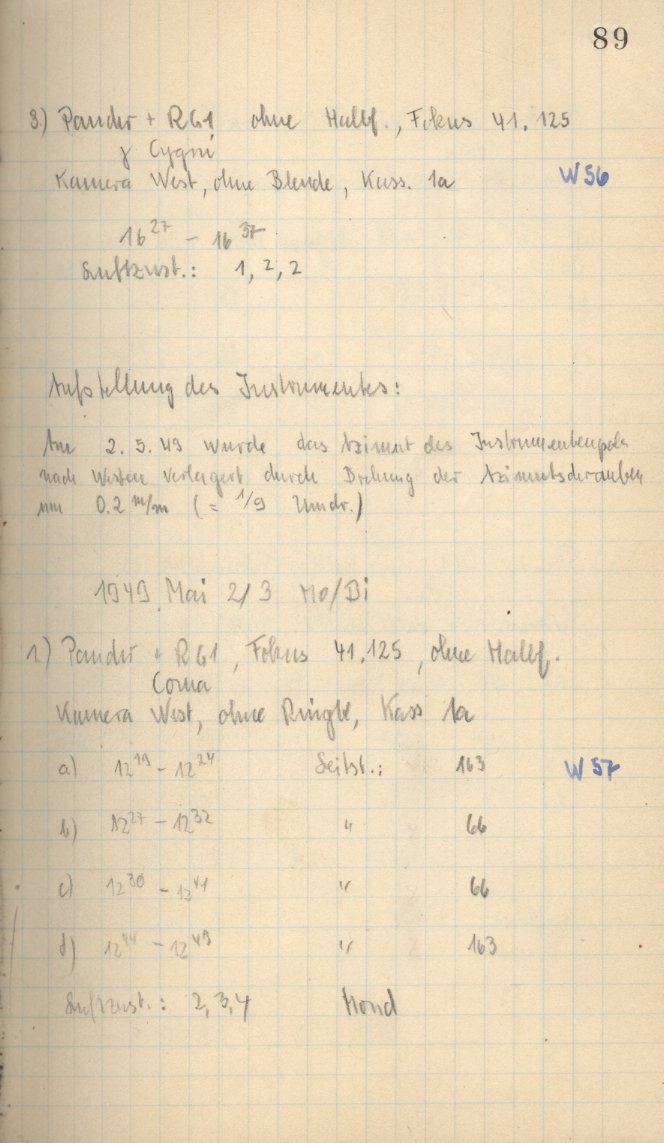 89
8.) Pander + RG1 ohne Hallf., Fokus 41.125
γ Cygni
Kamera West, ohne Blende, Kass. 1a W 56
16²⁷ - 16³⁷
Luftzust.: 1, 2, 2
Aufstellung des Instrumentes:
Am 2.5.49 wurde das Azimut des Instrumentenpols
nach Westen verlagert durch Drehung der Azimutschrauben
um 0.2 m/m (= 1/9 Umdr.)
1949 Mai 2/3 Mo/Di
1.) Pander + RG1, Fokus 41.125, ohne Hallf.
Coma
Kamera West, ohne Ringbl, Kass 1a
a) 12¹⁹ - 12²⁴ Seitst.: 163 W 57
b) 12²⁷ - 12³² " 66
c) 12³⁶ - 12⁴¹ " 66
d) 12⁴⁴ - 12⁴⁹ " 163
Luftzust.: 2, 3, 4 Mond